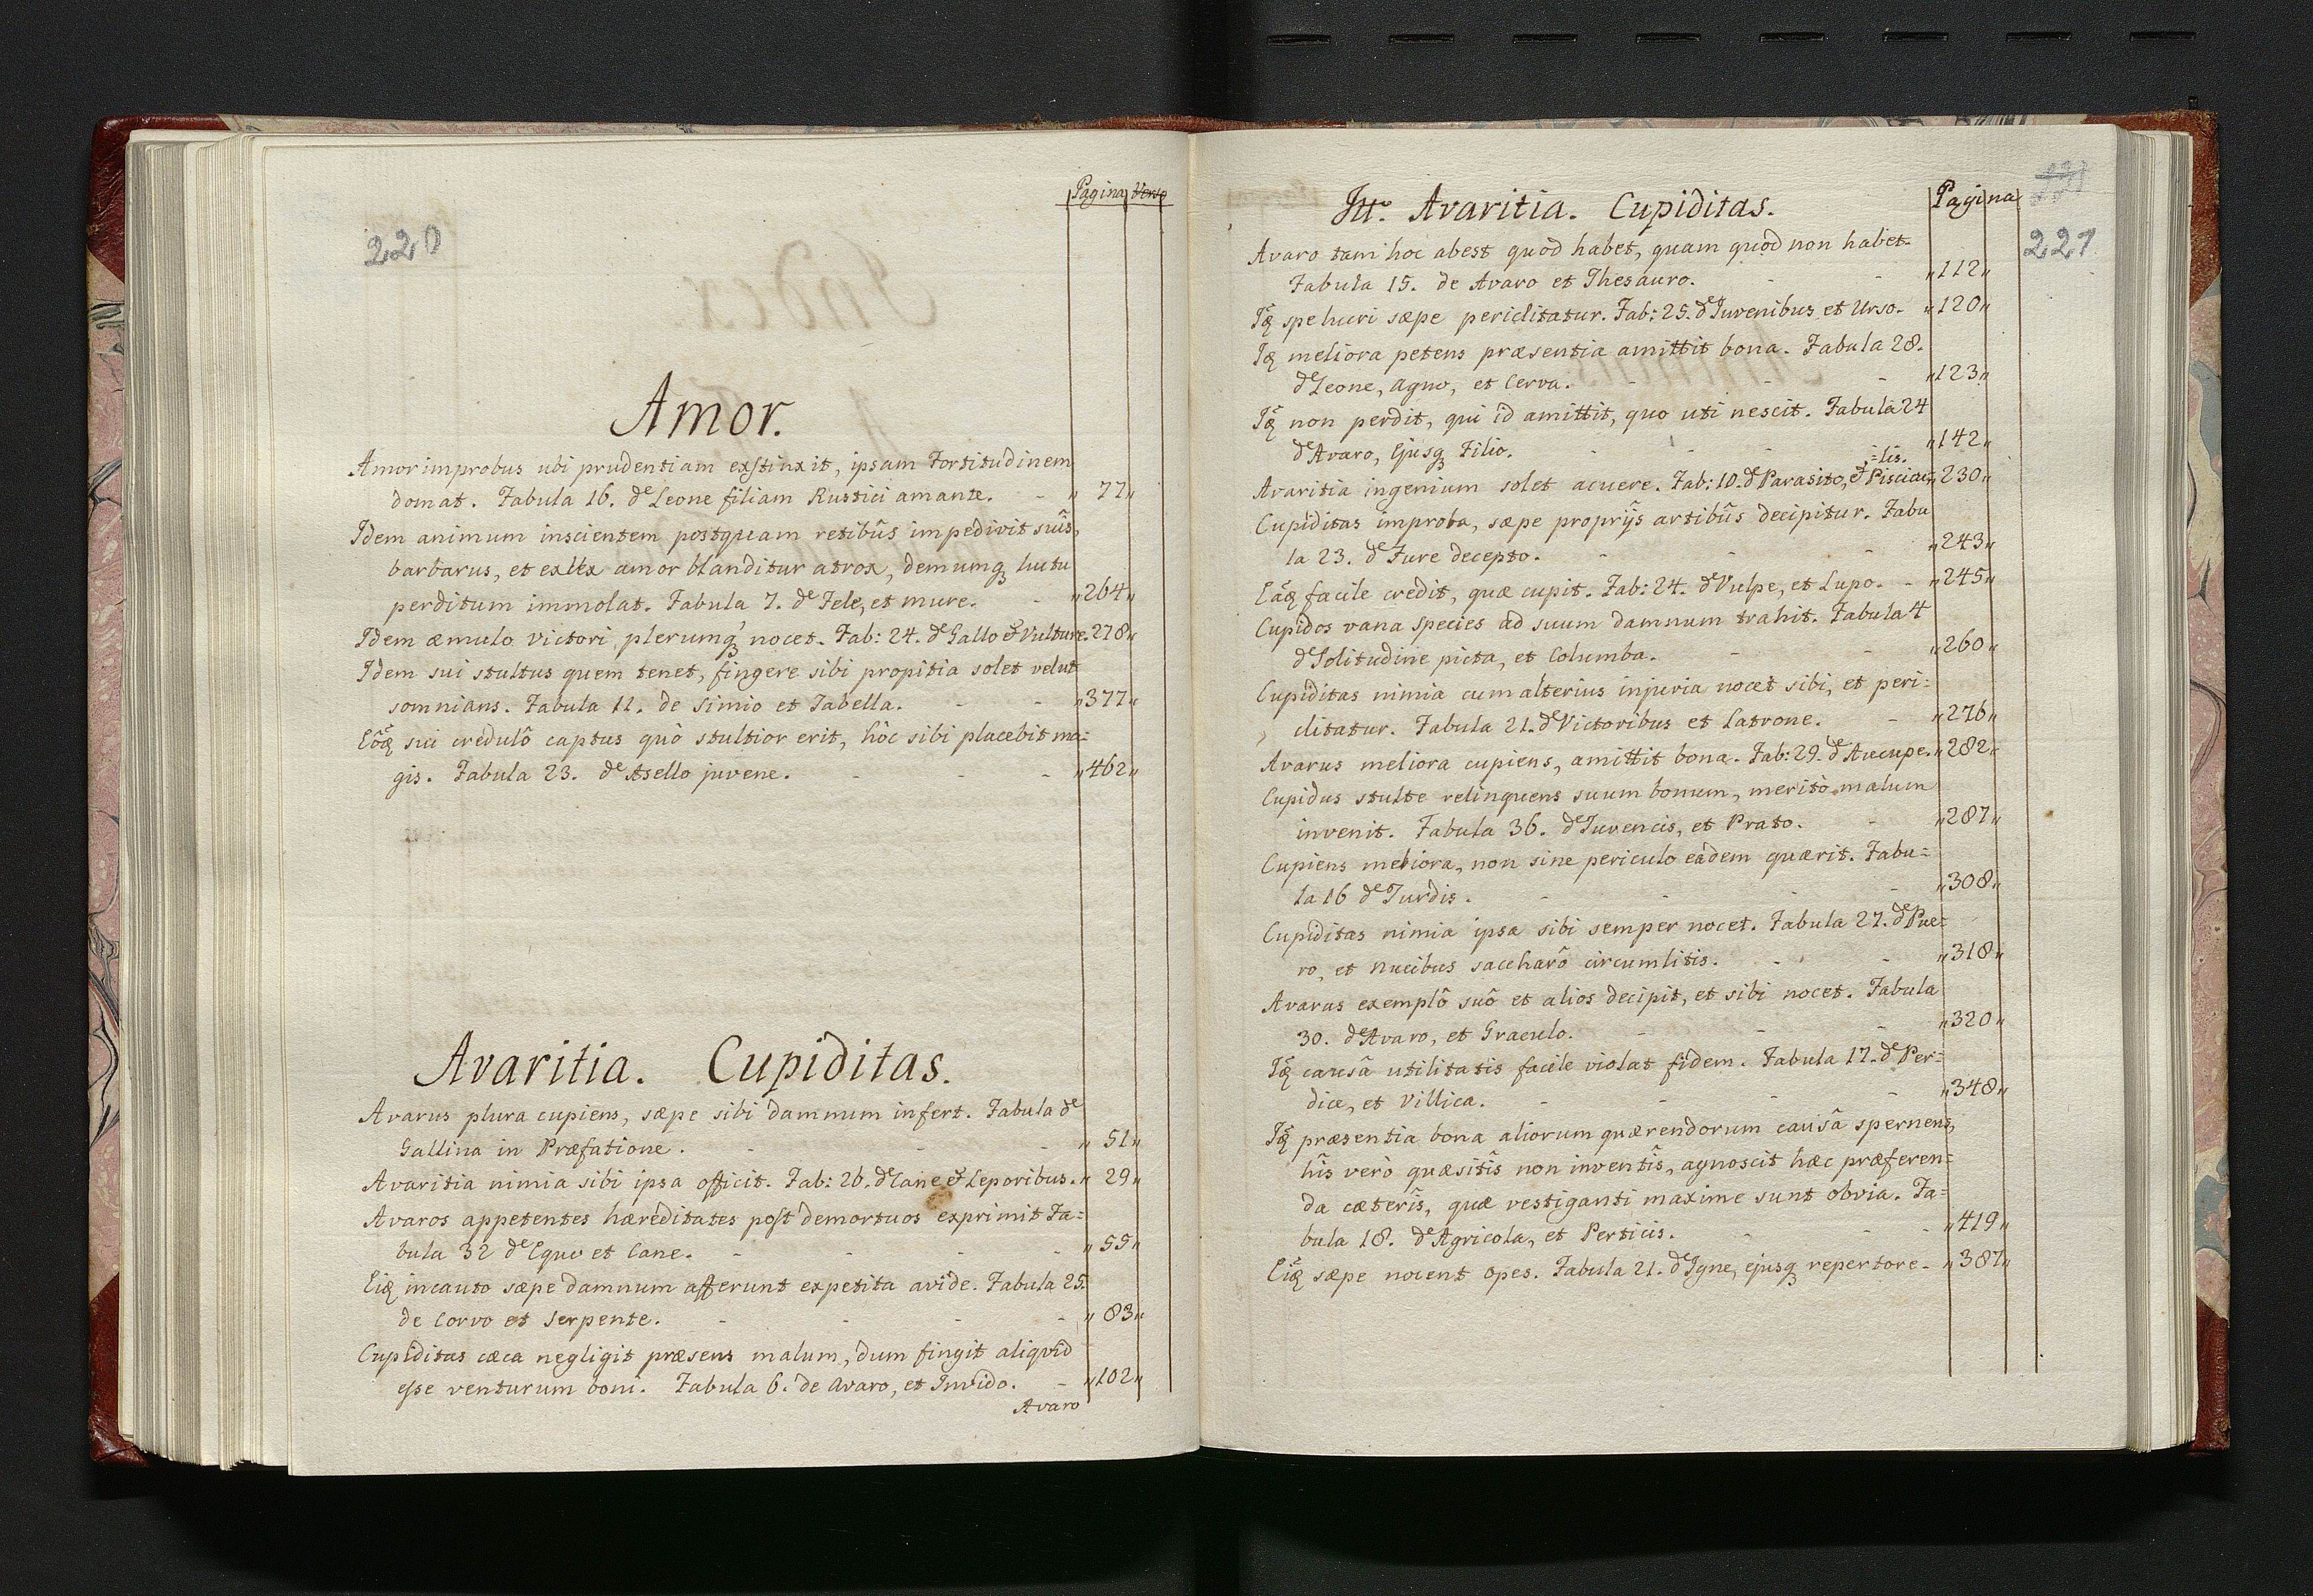 Pagina Verso
220
Amor.
Amor improbus ubi prudentiam exstinxit, ipsam Fortitudinem
domat. Fabula 16. de Leone filiam Rustici amante. - „ 77„
Idem animum inscientem postquam retibûs impedivit suîs,
barbarus, et exlex amor blanditur atrox, demumq luctu
perditum immolat. Fabula 7. de Fele, et mure. - „264„
Idem æmulo victori plerumq nocet. Fab: 24. de Gallo & Vulture. 278„
Idem sui stultus quem tenet, fingere sibi propitia solet velut
somnians. Fabula 11. de Simio et Tabella. - - „377„
Eôq sui credulô captus quò stultior erit, hôc sibi placebit ma=
gis. Fabula 23. de Asello juvene. - - - „462„
Avaritia. Cupiditas.
Avarus plura cupiens, sæpe sibi damnum infert. Fabula de
Gallina in Præfatione. - - - „ 51„
Avaritia nimia sibi ipsa officit. Fab: 26. de Cane & Leporibus. „ 29„
Avaros appetentes hæreditates post demortuos exprimit Fa=
bula 32 de Equo et Cane. - - - - „ 55„
Eiq incauto sæpe damnum afferunt expetita avide. Fabula 25.
de Corvo et Serpente. - - - - „ 83„
Cupiditas cæca negligit præsens malum, dum fingit aliqvid
esse venturum boni. Fabula 6. de Avaro, et Invido. - „102„
Avaro
Itt. Avaritia. Cupiditas. Pagina
221
Avaro tam hoc abest quod habet, quam quod non habet.
Fabula 15. de Avaro et Thesauro. - - „112„
Iq spe lucri sæpe periclitatur. Fab: 25. de Iuvenibus et Urso. „120„
Iq meliora petens præsentia amittit bona. Fabula 28.
de Leone, Agno, et Cerva. - - - „123„
Iq non perdit, qui id amittit, quo uti nescit. Fabula 24
de Avaro, Ejusq Filio. - - - „142„
=lis.
Avaritia ingenium solet acuere. Fab: 10. de Parasito, & Pisciac „230„
Cupiditas improba, sæpe proprijs artibûs decipitur. Fabu
la 23. de Fure decepto. - - - „243„
Eâq facile credit, quæ cupit. Fab: 24. de Vulpe, et Lupo. - „245„
Cupidos vana species ad suum damnum trahit. Fabula 4
de Solitudine picta, et Columba. - - „260„
Cupiditas nimia cum alterius injuria nocet sibi, et peri=
clitatur. Fabula 21. de Victoribus et Latrone. - „276„
Avarus meliora cupiens, amittit bona. Fab: 29. de Aucupe. „282„
Cupidus stulte relinquens suum bonum, meritò malum
invenit. Fabula 36. de Iuvencis, et Prato. - „287„
Cupiens meliora, non sine periculo eadem quærit. Fabu=
la 16 de Turdis. - - - - „308„
Cupiditas nimia ipsa sibi semper nocet. Fabula 27. de Pue=
ro, et Nucibus saccharô circumlitis. - - „318„
Avarus exemplô suô et alios decipit, et sibi nocet. Fabula
30. de Avaro, et Graculo. - - - „320„
Iq causâ utilitatis facile violat fidem. Fabula 17. de Per=
dice, et Villica. - - - - „348„
Iq præsentia bona aliorum quærendorum causâ spernens,
hîs verò quæsitîs non inventîs, agnoscit hæc præferen=
da cæterîs, quæ vestiganti maxime sunt obvia. Fa=
bula 18. de Agricola, et Perticis. - - - „419„
Eiq sæpe nocent opes. Fabula 21. de Igne, ejusq repertore. - „387„